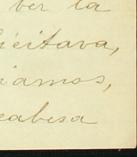 ver la
icitava,
iamos,
cabesa